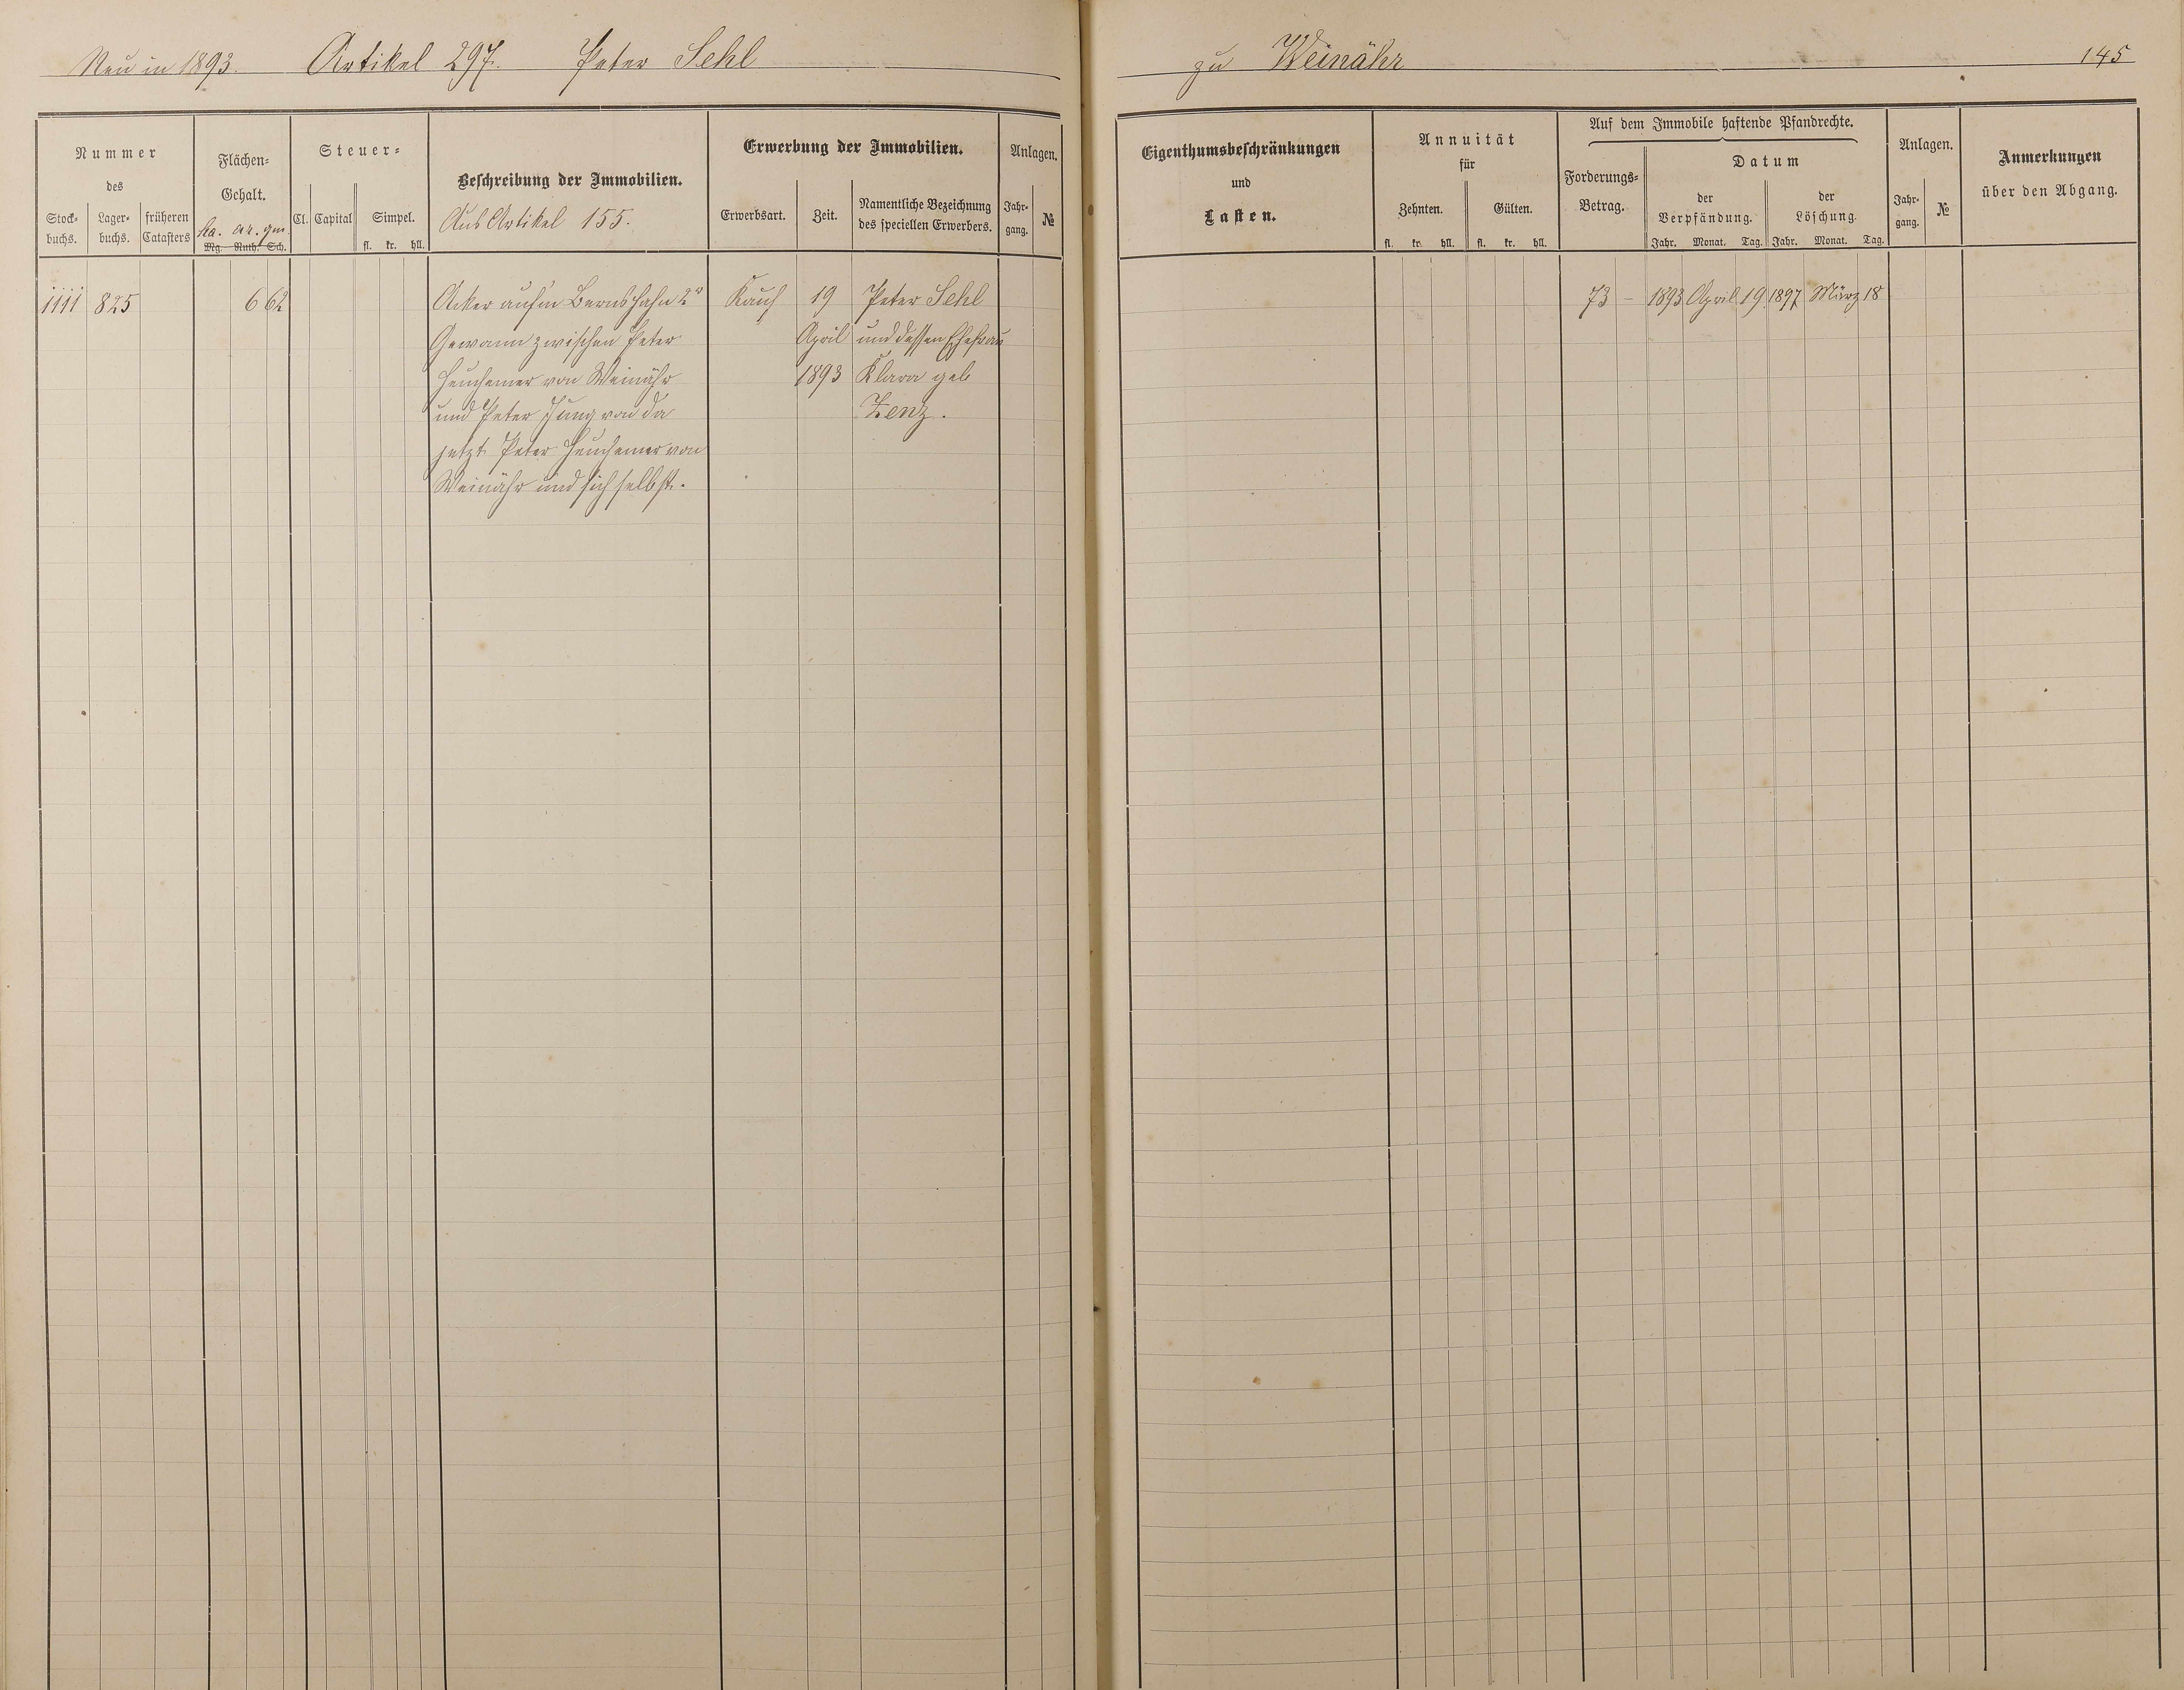 Neu in 1893. Artikel 297. Peter Sehl
zu Weinähr 145
Nummer
des
Stock-
buchs.
Lager-
buchs.
früheren
Catasters
Flächen-
Gehalt.
ha. ar. qm.
Mg. Ruth. Sch.
Steuer-
Cl. Capital Simpel.
fl. kr. hll.
Beschreibung der Immobilien.
Aus Artikel 155.
Erwerbung der Immobilien.
Erwerbsart. Zeit.
Namentliche Bezeichnung
des speciellen Erwerbers.
Anlagen.
Jahr-
gang.
№
Eigenthumsbeschränkungen
und
Lasten.
Annuität
für
Zehnten. Gülten.
fl. kr. hll. fl. kr. hll.
Auf dem Immobile haftende Pfandrechte.
Forderungs-
Betrag.
Datum
der
Verpfändung.
der
Löschung.
Jahr. Monat. Tag. Jahr. Monat. Tag.
Anlagen.
Jahr-
gang.
№
Anmerkungen
über den Abgang.
1111 825 6 62 Acker auf'm 2r Kauf 19 Peter Sehl 73 – 1893 April 19 1897 März 18
Gewann zwischen Peter April und dessen Ehefrau
Heuchemer von Weinähr 1893 Klara geb
und Peter Jung von da Zenz.
jetzt Peter Heuchemer von
Weinähr und sich selbst.